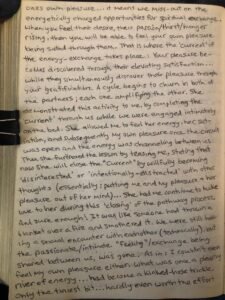 ones own pleasure... it meant we miss-out on the
energetically charged opportunities for spiritual exchange.
When you feel their desire, their passion/thirst/hunger
rising, then you will be able to feel your own pleasure
being sated through them. That is where the 'current' of
the energy-exchange takes place. Your pleasure be-
comes discovered through their elevating satisfaction...
while they simultaneously discover their pleasure through
your gratification. A cycle begins to churn in both of
the partners; each one amplifying the other. She
demonstrated this activity to me, by completing the
'current' through us while we were engaged intimately
on the bed. She allowed me to feel her energy: her satis-
faction, and subsequently my own pleasure once the circuit
was open and the energy was channeling between us.
Then she furthered the lesson by teaching, stating that
now she will close the "current" by willfully becoming
'disinterested' or 'intentionally-distracted' with other
thoughts (essentially; putting me and my pleasure & her
pleasure, out of her mind)... She had me continue to make
love to her during this 'closing' of the pathway/process.
And sure enough! It was like someone had thrown a
blanket over a fire and smothered it. We were still hav-
ing a sexual encounter with one another (technically), but
the passionate/intimate "feeling"/exchange being
shared between us, was gone. As in: I couldn't even
feel my own pleasure either. What was once a flowing
river of energy... had become a kinked-hose trickle.
Only the tiniest bit... hardly even worth the effort